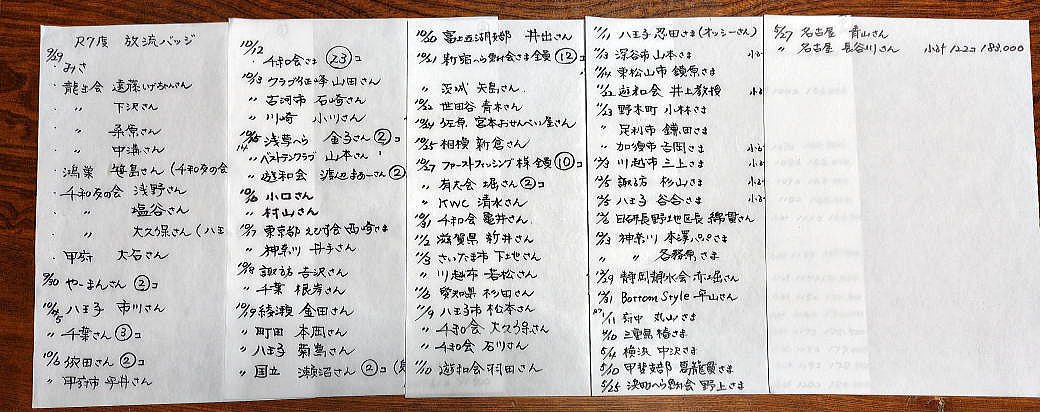 R7度 放流バッジ
9/29 みさ
龍生会 遠藤いげちゃん
〃 下沢さん
〃 桑原さん
〃 中溝さん
鴻巣 笹島さん (千和友の会
千和友の会 浅野さん
〃 塩谷さん
〃 大久保さん (八王
甲府 大石さん
9/30 やーまんさん ②コ
八王子 市川さん
〃 千葉さん ③コ
10/6 依田さん ②コ
〃 甲府市
10/12
千和会さま ㉓
10/13 クラブ 山田さん
〃 古河市 石崎さん
〃 川崎 小川さん
浅草へら 金子さん ②コ
〃 ベストランクラブ 山本さん
〃 遊和会 渡辺まあーさん ②
小口さん
〃 村山さん
東京都 えびす会 西崎さま
〃 神奈川 丹子さん
10/18 諏訪 吉沢さん
〃 千葉 根岸さん
10/19 綾瀬 金田さん
〃 町田 本岡さん
〃 八王子 菊島さん
〃 国立 瀬沼さん ②コ
10/20 富士五湖支部 井出さん
10/21 新宿へら鮒会さま 全員 ⑫コ
〃 茨城 矢島さん
10/22 世田谷 青木さん
10/24 佐原 宮本おせんべい屋さん
10/25 相模 新倉さん
10/27 ファーストフィッシング様 全員 ⑩コ
〃 有大会 堀さん ②コ
〃 KWC 清水さん
千和会 亀井さん
滋賀県 新井さん
さいたま市 下地さん
〃 川越市 若松さん
愛知県 杉田さん
11/9 八王子市 松本さん
〃 千和会 大久保さん
〃 千和会 石川さん
11/10 遊和会 羽田さん
11/11 八王子 忍田さま (オッシーさん)
11/13 深谷市 山本さま 小計
11/14 東松山市 鏡原さま
11/22 遊和会 井上教授 小計
11/23 野木町 小林さま
〃 足利市 鎌田さま
〃 加須市 吉岡さま 小計
川越市 三上さま 小計
諏訪 杉山さま 小計
八王子 谷合さま 小計
日研長野地区長 綿貫さん
神奈川 本澤パパさま
〃 〃 各務原さま
12/29 静岡 湖水会 赤堀さん
12/31 Bottom Style 平山さん
1/11 府中 丸山さま
三重県 椿さま
横浜 中沢さま
甲斐支部 葛籠貫さま
5/25 へら鮒会 野上さま
5/27 名古屋 青山さん
〃 名古屋 長谷川さん 小計 122コ 183,000